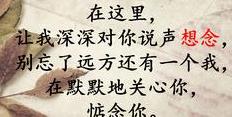 在这里,
让我深深对你说声想念,
别忘了远方还有一个我,
在默默地关心你,
惦念你。